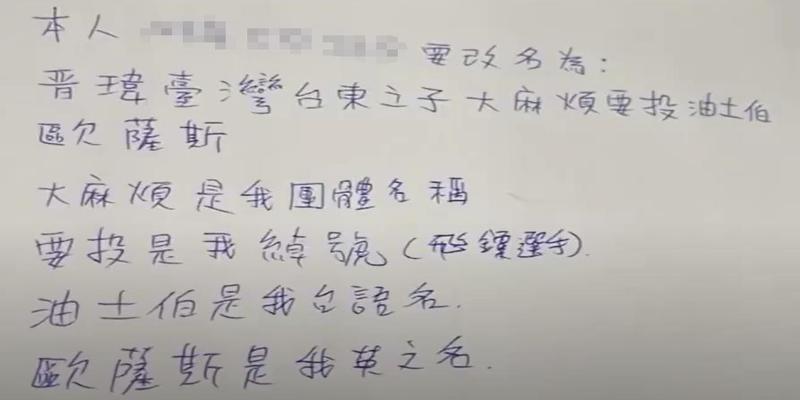 本人 要改名為:
晋瑋臺灣台東之子大麻煩要投油土伯
歐薩斯
大麻煩是我團體名稱
要投是我綽號(飛鏢選手).
油土伯是我台語名.
歐薩斯是我英文名.